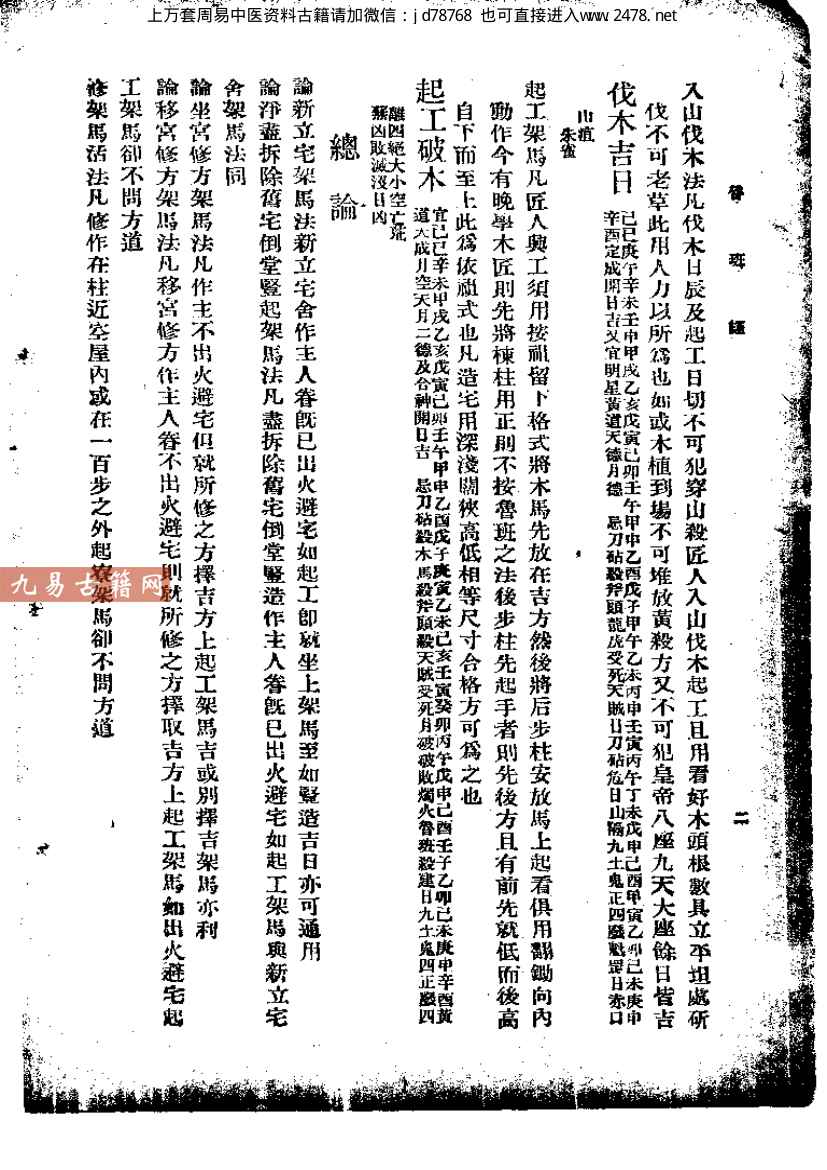 上万套周易中医资料古籍请加微信：jd78768 也可直接进入www.2478.net
魯班經
二
入山伐木法凡伐木日辰及起工日切不可犯穿山殺匠人入山伐木起工且用看好木頭根數具立平坦處斫
伐不可老草此用人力以所爲也如或木植到場不可堆放黃殺方又不可犯皇帝八座九天大座餘日皆吉
伐木吉日
己巳庚午辛未壬申甲戌乙亥戊寅己卯壬午甲申乙酉戊子甲午乙未丙申壬寅丙午丁未戊申己酉甲寅乙卯己未庚申
辛酉定成開日吉又宜明星黃道天德月德 忌刀砧殺斧頭龍虎受死天賊日刀砧危日山隔九土鬼正四廢魁罡日赤口
山瘟
朱雀
起工架馬凡匠人興工須用按祖留下格式將木馬先放在吉方然後將后步柱安放馬上起看俱用翻鋤向內
動作今有晚學木匠則先將棟柱用正則不按魯班之法後步柱先起手者則先後方且有前先就低而後高
自下而至上此爲依祖式也凡造宅用深淺闊狹高低相等尺寸合格方可爲之也
起工破木
宜己巳辛未甲戌乙亥戊寅己卯壬午甲申乙酉戊子庚寅乙未己亥壬寅癸卯丙午戊申己酉壬子乙卯己未庚申辛酉黃
道天成月空天月二德及合神開日吉 忌刀砧殺木馬殺斧頭殺天賊受死月破破敗燭火魯班殺建日九土鬼四正廢四
離四絕大小空亡荒
蕪凶敗滅沒日凶
總論
論新立宅架馬法新立宅舍作主人眷既已出火避宅如起工卽就坐上架馬至如豎造吉日亦可通用
論淨盡拆除舊宅倒堂豎起架馬法凡盡拆除舊宅倒堂豎造作主人眷既已出火避宅如起工架馬與新立宅
舍架馬法同
論坐宮修方架馬法凡作主不出火避宅但就所修之方擇吉方上起工架馬吉或別擇吉架馬亦利
論移宮修方架馬法凡移宮修方作主人眷不出火避宅則就所修之方擇取吉方上起工架馬如出火避宅起
工架馬卻不問方道
修架馬活法凡修作在柱近空屋內或在一百步之外起寮架馬卻不問方道
九易古籍网